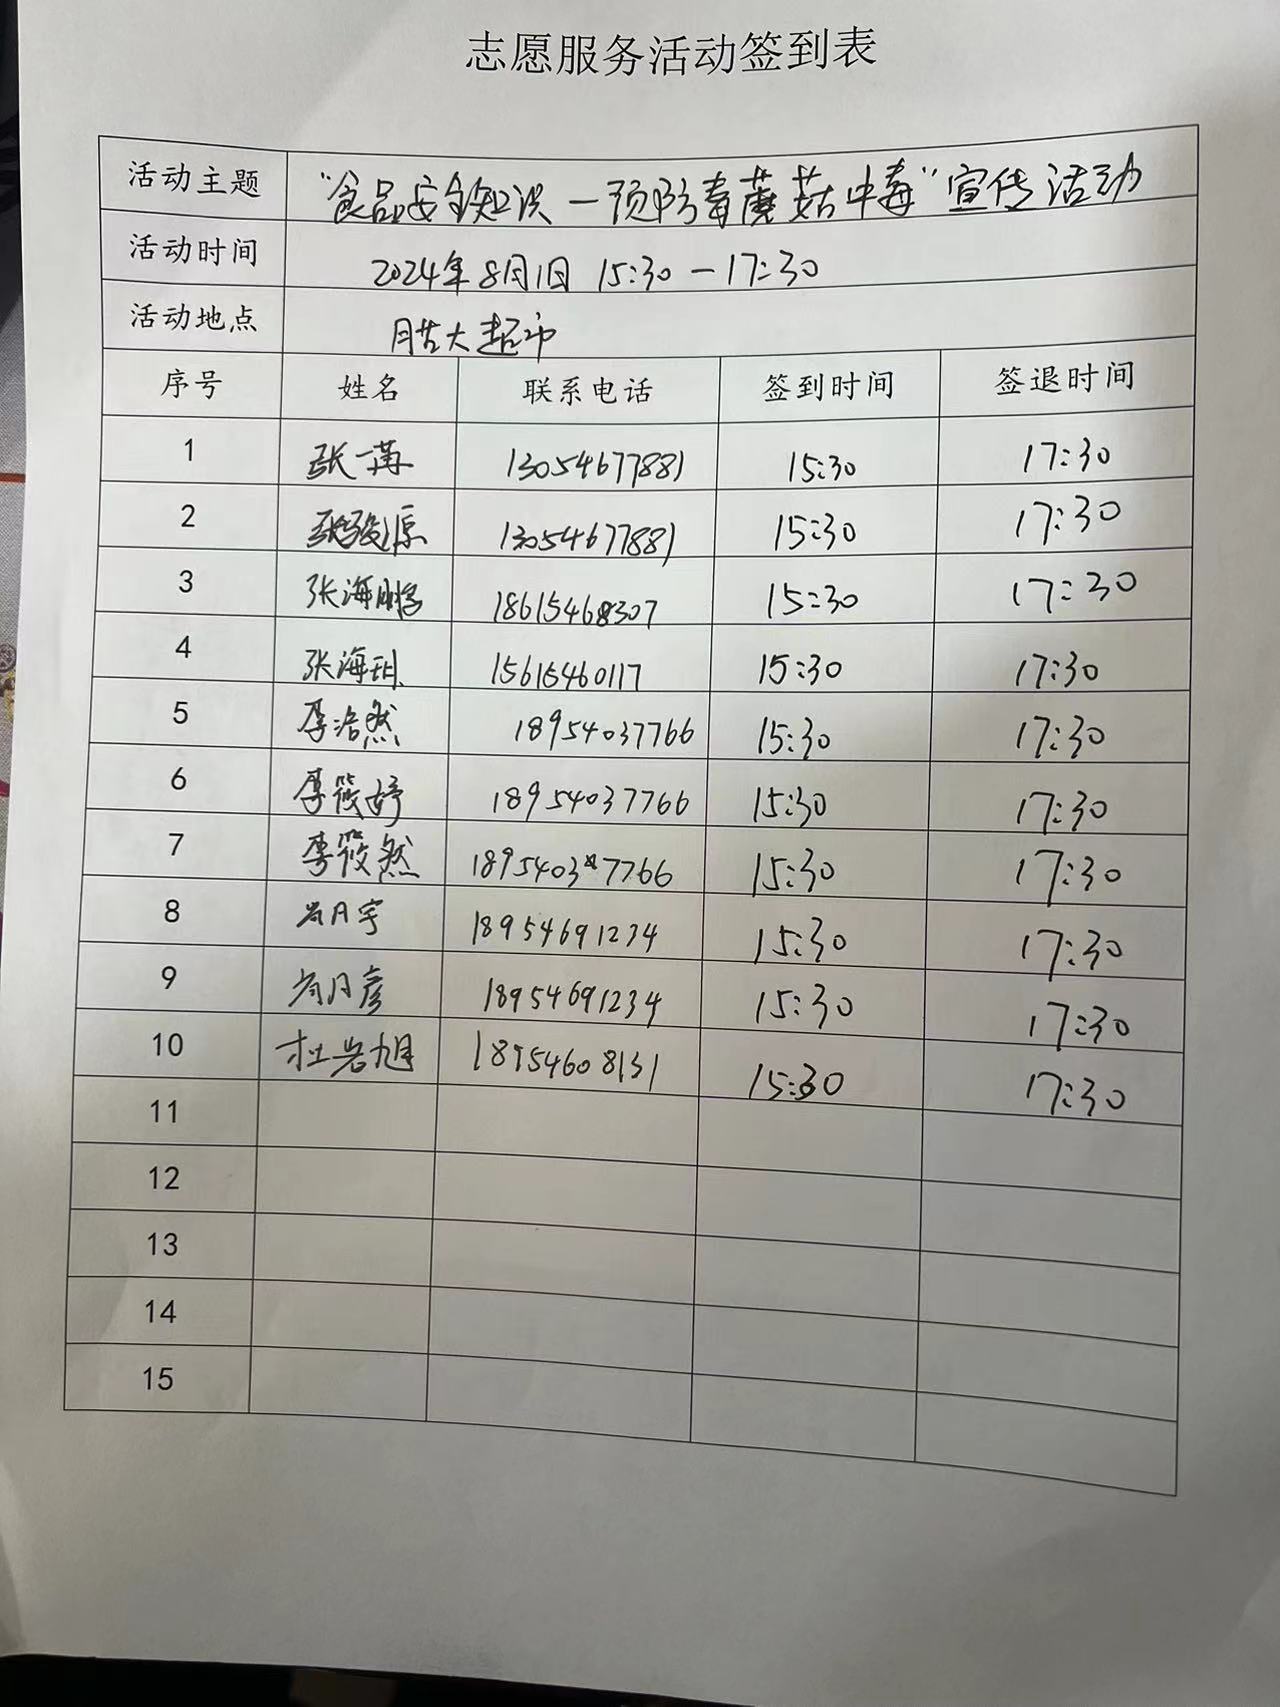 志愿服务活动签到表
活动主题 "食品安全知识一预防毒蘑菇中毒"宣传活动
活动时间 2024年8月1日 15:30一17:30
活动地点 胜大超市
序号 姓名 联系电话 签到时间 签退时间
1 张一 13054677881 15:30 17:30
2 张骏源 13054677881 15:30 17:30
3 张海鹏 18615468307 15:30 17:30
4 张海 15615460117 15:30 17:30
5 李浩然 18954037766 15:30 17:30
6 李筱婷 18954037766 15:30 17:30
7 李筱然 1895403 7766 15:30 17:30
8 尚月宇 18954691234 15:30 17:30
9 尚月彦 18954691234 15:30 17:30
10 杜岩旭 18954608131 15:30 17:30
11
12
13
14
15